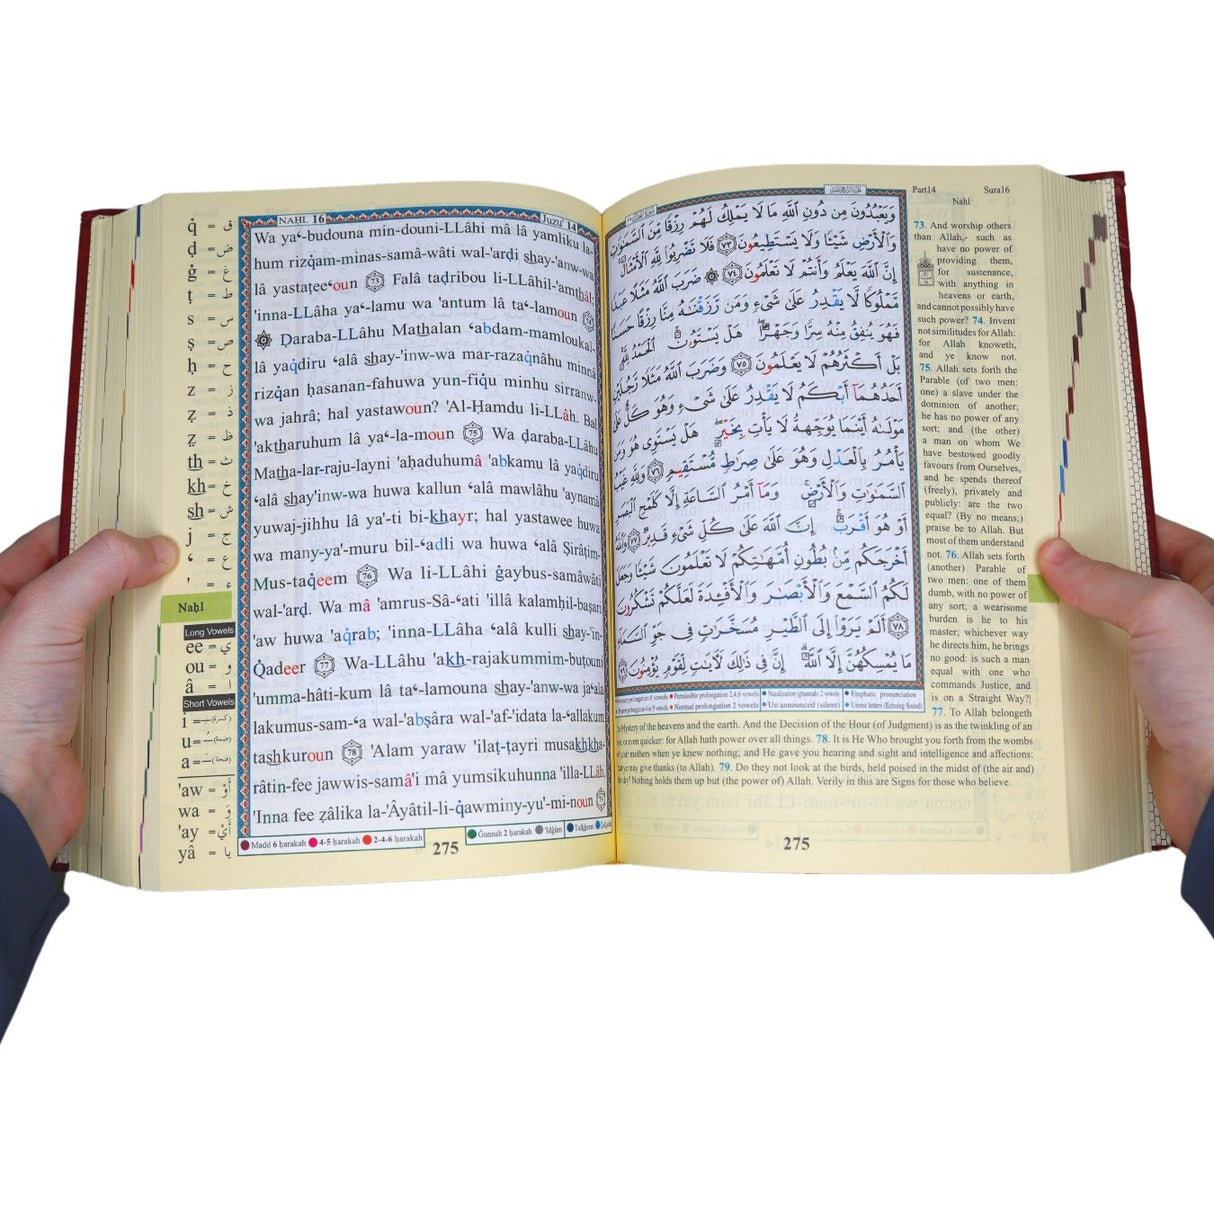 q̇ = ق
ḍ = ض
ġ = غ
ṭ = ط
s = س
ṣ = ص
ḥ = ح
z = ز
ẕ = ذ
ẓ = ظ
th = ث
kh = خ
sh = ش
j = ج
‘ = ع
' = ء
Naḥl
Long Vowels
ee = ي
ou = و
â = ا
Short Vowels
i = (كسرة)
u = (ضمة)
a = (فتحة)
'aw = أَوْ
wa = وَ
'ay = أَيْ
yâ = يا
NAHL 16
Juzu' 14
Wa ya‘-budouna min-douni-LLâhi mâ lâ yamliku la-
hum rizq̇am-minas-samâ-wâti wal-'arḍi shay-'anw-wa
lâ yastaṭee‘oun 73 Falâ taḍribou li-LLâhil-'amthâl;
'inna-LLâha ya‘-lamu wa 'antum lâ ta‘-lamoun 74
Ḍaraba-LLâhu Mathalan ‘abdam-mamloukal-
lâ yaq̇diru ‘alâ shay-'inw-wa mar-razaq̇nâhu minnâ
rizq̇an ḥasanan-fahuwa yun-fiq̇u minhu sirranw-
wa jahrâ; hal yastawoun? 'Al-Ḥamdu li-LLâh. Bal
'aktharuhum lâ ya‘-la-moun 75 Wa ḍaraba-LLâhu
Matha-lar-raju-layni 'aḥaduhumâ 'abkamu lâ yaq̇diru
‘alâ shay'inw-wa huwa kallun ‘alâ mawlâhu 'aynamâ
yuwaj-jihhu lâ ya'-ti bi-khayr; hal yastawee huwa
wa many-ya'-muru bil-‘adli wa huwa ‘alâ Ṣirâṭim-
Mus-taq̇eem 76 Wa li-LLâhi ġaybus-samâwâti
wal-'arḍ. Wa mâ 'amrus-Sâ-‘ati 'illâ kalamḥil-baṣari
'aw huwa 'aq̇rab; 'inna-LLâha ‘alâ kulli shay-'in-
Q̇adeer 77 Wa-LLâhu 'akh-rajakummim-buṭouni
'umma-hâti-kum lâ ta‘-lamouna shay-'anw-wa ja‘ala
lakumus-sam-‘a wal-'abṣâra wal-'af-'idata la-‘allakum
tashkuroun 78 'Alam yaraw 'ilaṭ-ṭayri musakhkha-
râtin-fee jawwis-samâ'i mâ yumsikuhunna 'illa-LLâh.
'Inna fee ẕâlika la-'Âyâtil-li-q̇awminy-yu'-mi-noun 79
Madd 6 ḥarakah 4-5 ḥarakah 2-4-6 ḥarakah
Ġunnah 2 ḥarakah 'Idġâm Tafkheem
275
وَيَعْبُدُونَ مِن دُونِ ٱللَّهِ مَا لَا يَمْلِكُ لَهُمْ رِزْقًا مِّنَ ٱلسَّمَٰوَٰتِ
وَٱلْأَرْضِ شَيْـًٔا وَلَا يَسْتَطِيعُونَ ٧٣ فَلَا تَضْرِبُوا۟ لِلَّهِ ٱلْأَمْثَالَ
إِنَّ ٱللَّهَ يَعْلَمُ وَأَنتُمْ لَا تَعْلَمُونَ ٧٤ ۞ ضَرَبَ ٱللَّهُ مَثَلًا عَبْدًا
مَّمْلُوكًا لَّا يَقْدِرُ عَلَىٰ شَىْءٍ وَمَن رَّزَقْنَٰهُ مِنَّا رِزْقًا حَسَنًا
فَهُوَ يُنفِقُ مِنْهُ سِرًّا وَجَهْرًا هَلْ يَسْتَوُۥنَ ٱلْحَمْدُ لِلَّهِ
بَلْ أَكْثَرُهُمْ لَا يَعْلَمُونَ ٧٥ وَضَرَبَ ٱللَّهُ مَثَلًا رَّجُلَيْنِ
أَحَدُهُمَآ أَبْكَمُ لَا يَقْدِرُ عَلَىٰ شَىْءٍ وَهُوَ كَلٌّ عَلَىٰ
مَوْلَىٰهُ أَيْنَمَا يُوَجِّههُّ لَا يَأْتِ بِخَيْرٍ هَلْ يَسْتَوِى هُوَ وَمَن
يَأْمُرُ بِٱلْعَدْلِ وَهُوَ عَلَىٰ صِرَٰطٍ مُّسْتَقِيمٍ ٧٦ وَلِلَّهِ غَيْبُ
ٱلسَّمَٰوَٰتِ وَٱلْأَرْضِ وَمَآ أَمْرُ ٱلسَّاعَةِ إِلَّا كَلَمْحِ ٱلْبَصَرِ
أَوْ هُوَ أَقْرَبُ إِنَّ ٱللَّهَ عَلَىٰ كُلِّ شَىْءٍ قَدِيرٌ ٧٧ وَٱللَّهُ
أَخْرَجَكُم مِّنۢ بُطُونِ أُمَّهَٰتِكُمْ لَا تَعْلَمُونَ شَيْـًٔا وَجَعَلَ
لَكُمُ ٱلسَّمْعَ وَٱلْأَبْصَٰرَ وَٱلْأَفْـِٔدَةَ لَعَلَّكُمْ تَشْكُرُونَ
٧٨ أَلَمْ يَرَوْا۟ إِلَى ٱلطَّيْرِ مُسَخَّرَٰتٍ فِى جَوِّ ٱلسَّمَآءِ
مَا يُمْسِكُهُنَّ إِلَّا ٱللَّهُ إِنَّ فِى ذَٰلِكَ لَءَايَٰتٍ لِّقَوْمٍ يُؤْمِنُونَ ٧٩
prolongation 6 vowels Permissible prolongation 2,4,6 vowels Nazalization (ghunnah) 2 vowels Emphatic pronunciation
4 or 5 vowels Normal prolongation 2 vowels Un announced (silent) Unrest letters (Echoing Sound)
Part14 Sura16
Nahl
73. And worship others
than Allah,- such as
have no power of
providing them,
for sustenance,
with anything in
heavens or earth,
and cannot possibly have
such power? 74. Invent
not similitudes for Allah:
for Allah knoweth,
and ye know not.
75. Allah sets forth the
Parable (of two men:
one) a slave under the
dominion of another;
he has no power of any
sort; and (the other)
a man on whom We
have bestowed goodly
favours from Ourselves,
and he spends thereof
(freely), privately and
publicly: are the two
equal? (By no means;)
praise be to Allah. But
most of them understand
not. 76. Allah sets forth
(another) Parable of
two men: one of them
dumb, with no power of
any sort; a wearisome
burden is he to his
master; whichever way
he directs him, he brings
no good: is such a man
equal with one who
commands Justice, and
is on a Straight Way?
77. To Allah belongeth
the Mystery of the heavens and the earth. And the Decision of the Hour (of Judgment) is as the twinkling of an
eye, or even quicker: for Allah hath power over all things. 78. It is He Who brought you forth from the wombs
of your mothers when ye knew nothing; and He gave you hearing and sight and intelligence and affections:
that ye may give thanks (to Allah). 79. Do they not look at the birds, held poised in the midst of (the air and)
the sky? Nothing holds them up but (the power of) Allah. Verily in this are Signs for those who believe.
275